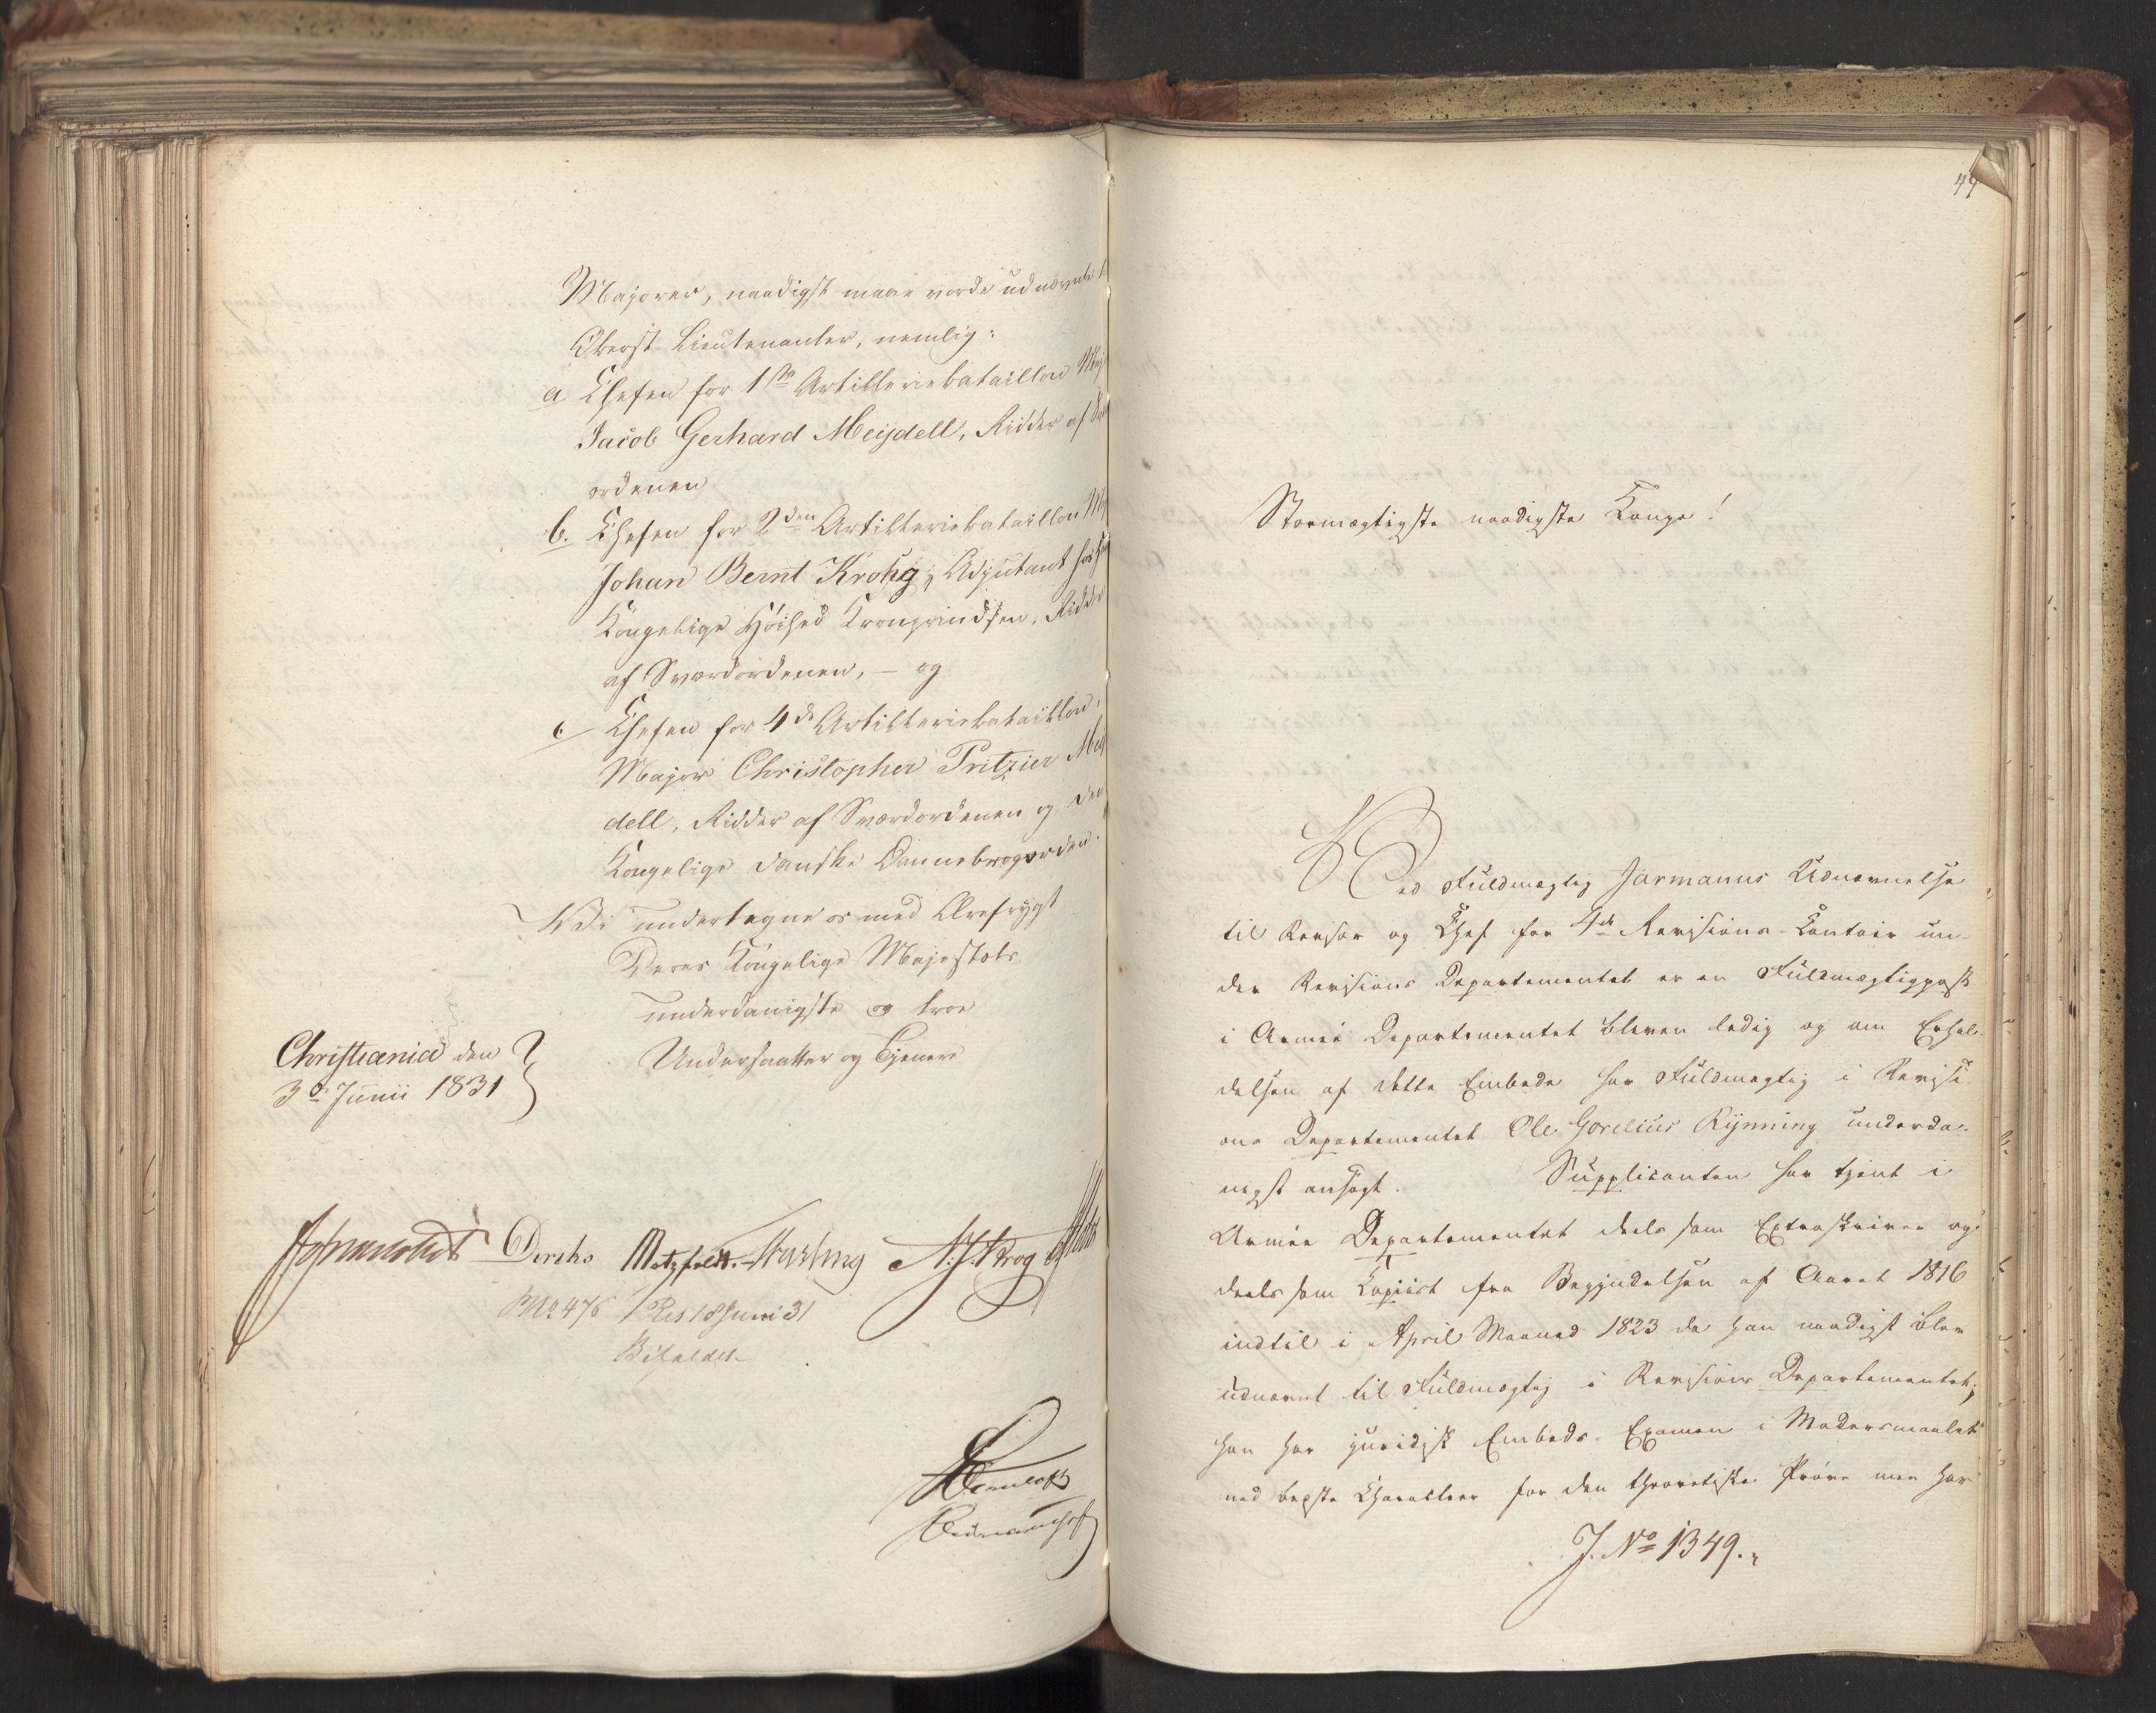 Majorer, naadigst maae vorde udnævnte
Oberst-Lieutenanter, nemlig:
a Chefen for 1ste Artilleriebataillon
Jacob Gerhard Meijdell, Ridder af
ordenen
b. Chefen for 2den Artilleriebataillon
Johan Bernt Krohg, Adjutant hos
Kongelige Höihed Kronprindsen, Ridder
af Sværdordenen, – og
c Chefen for 4de Artilleriebataillon,
Major Christopher Pritzier
dell, Ridder af Sværdordenen og den
Kongelige danske Dannebrogorden.
Vi undertegne os med Ærefrygt
Deres Kongelige Majestæts
underdanigste og troe
Undersaatter og Tjenere
Christiania den
3de Junii 1831
Diriks Motzfeldt. N. J. Krog
No 476 Res 18 Juni 31
Bifaldet
44
Stormægtigste naadigste Konge!
Ved Fuldmægtig Jarmanns Udnævnelse
til Revisor og Chef for 4de Revisions-Contoir un-
der Revisions Departementet er en Fuldmægtigpost
i Armee Departementet bleven ledig og om Erhol-
delsen af dette Embede har Fuldmægtig i Revisi-
ons Departementet Ole Gorelius Rynning underda-
nigst ansøgt. Supplicanten har tjent i
Armee Departementet deels som Extraskriver og
deels som Copiist fra Begyndelsen af Aaret 1816
indtil i April Maaned 1823 da han naadigst blev
udnævnt til Fuldmægtig i Revisions Departementet;
han har juridisk Embeds-Examen i Modersmaalet
med bedste Charakteer for den theoretiske Prøve men har
J. No 1349.